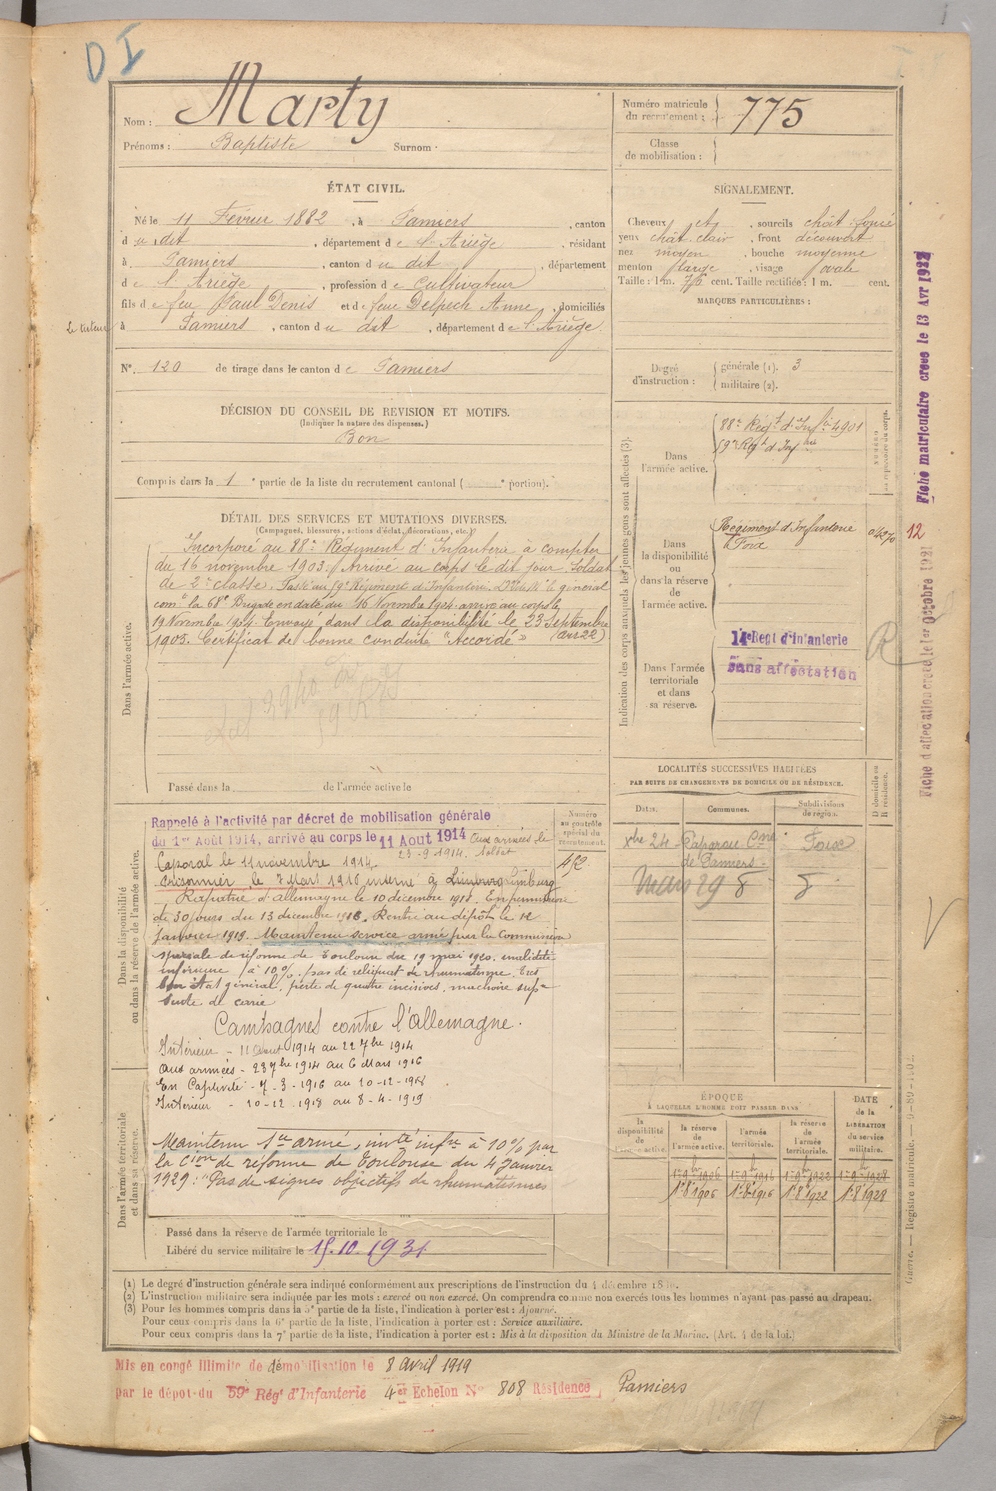 D I
Nom : Marty
Prénoms : Baptiste Surnom :
Numéro matricule du recrutement : 775
Classe de mobilisation :
ÉTAT CIVIL.
Né le 11 Février 1882, à Pamiers, canton
du dit, département de l'Ariège, résidant
à Pamiers, canton du dit, département
de l'Ariège, profession de Cultivateur
fils de feu Paul Denis et de feue Delpech Anne, domiciliés
Le tuteur à Pamiers, canton du dit, département de l'Ariège.
N° 120 de tirage dans le canton de Pamiers
SIGNALEMENT.
Cheveux et, sourcils chât. foncé
yeux chât. clair, front découvert
nez moyen, bouche moyenne
menton large, visage ovale
Taille : 1 m. cent. Taille rectifiée : 1 m. cent.
MARQUES PARTICULIÈRES :
Degré d'instruction : générale (1). 3
militaire (2).
DÉCISION DU CONSEIL DE REVISION ET MOTIFS.
(Indiquer la nature des dispenses.)
Bon
Compris dans la 1e partie de la liste du recrutement cantonal ( e portion).
DÉTAIL DES SERVICES ET MUTATIONS DIVERSES.
(Campagnes, blessures, actions d'éclat, décorations, etc.)
Dans l'armée active.
Incorporé au 88e Régiment d'Infanterie à compter
du 16 novembre 1903. Arrivé au corps le dit jour. Soldat
de 2e classe. Passé au 59e Régiment d'Infanterie le général
comt la 68e Brigade en date du 16 Novembre 1904 arrivé au corps le
19 Novembre 1904. Envoyé dans la disponibilité le 23 Septembre
1905. Certificat de bonne conduite "Accordé"
Passé dans la de l'armée active le
Indication des corps auxquels les jeunes gens sont affectés (3).
Dans l'armée active.
88e Régt d'Infie
59e Régt d'Infie
Dans la disponibilité ou dans la réserve de l'armée active.
Régiment d'Infanterie
Foix
Dans l'armée territoriale et dans sa réserve.
14e Regt d'infanterie
Sans affectation
Fiche matriculaire créée le 13 Avr 1922
12
R
Dans la disponibilité ou dans la réserve de l'armée active.
Rappelé à l'activité par décret de mobilisation générale
du 1er Août 1914, arrivé au corps le 11 Aout 1914 Aux armées le
23-9-1914. Soldat
Caporal le 11 novembre 1914.
Prisonnier le 7 Mars 1916 interné à Limburg Limburg
Rapatrié d'Allemagne le 10 décembre 1918. En permission
de 30 jours du 13 décembre 1918. Rentré au dépôt le 12
janvier 1919. Maintenu service armé par la Commission
spéciale de réforme de Toulouse du 19 mai 1920. invalidité
inférieure à 10%. pas de reliquat de rhumatisme. Très
bon état général, perte de quatre incisives, machoire sup-
suite de carie
Numéro au contrôle spécial du recrutement.
Campagnes contre l'Allemagne.
Intérieur - 11 Aout 1914 au 22 7bre 1914
Aux armées - 23 7bre 1914 au 6 Mars 1916
En Captivité - 7-3-1916 au 10-12-1918
Intérieur - 10-12-1918 au 8-4-1919
Dans l'armée territoriale et dans sa réserve.
Maintenu Sce armé, invté infre à 10% par
la Cion de réforme de Toulouse du 4 Janvier
1929 : "Pas de signes objectifs de rhumatismes
Passé dans la réserve de l'armée territoriale le
Libéré du service militaire le 15.10.1931
LOCALITÉS SUCCESSIVES HABITÉES
PAR SUITE DE CHANGEMENTS DE DOMICILE OU DE RÉSIDENCE.
Dates. Communes. Subdivisions de région. D domicile ou R résidence.
xbre 24 Cne de Pamiers. Foix
Mars 29
ÉPOQUE
À LAQUELLE L'HOMME DOIT PASSER DANS
la disponibilité de l'armée active. la réserve de l'armée active. l'armée territoriale. la réserve de l'armée territoriale. DATE de la LIBÉRATION du service militaire.
1r 8 1906 1r 8 1916 1r 8 1922 1r 8 1928
Guerre. — Registre matricule.
(1) Le degré d'instruction générale sera indiqué conformément aux prescriptions de l'instruction du 4 décembre
(2) L'instruction militaire sera indiquée par les mots : exercé ou non exercé. On comprendra comme non exercés tous les hommes n'ayant pas passé au drapeau.
(3) Pour les hommes compris dans la 5e partie de la liste, l'indication à porter est : Ajourné.
Pour ceux compris dans la 6e partie de la liste, l'indication à porter est : Service auxiliaire.
Pour ceux compris dans la 7e partie de la liste, l'indication à porter est : Mis à la disposition du Ministre de la Marine. (Art. 4 de la loi.)
Mis en congé illimité de démobilisation le 8 Avril 1919
par le dépôt du 59e Régt d'Infanterie 4er Echelon N° 808 Résidence, Pamiers